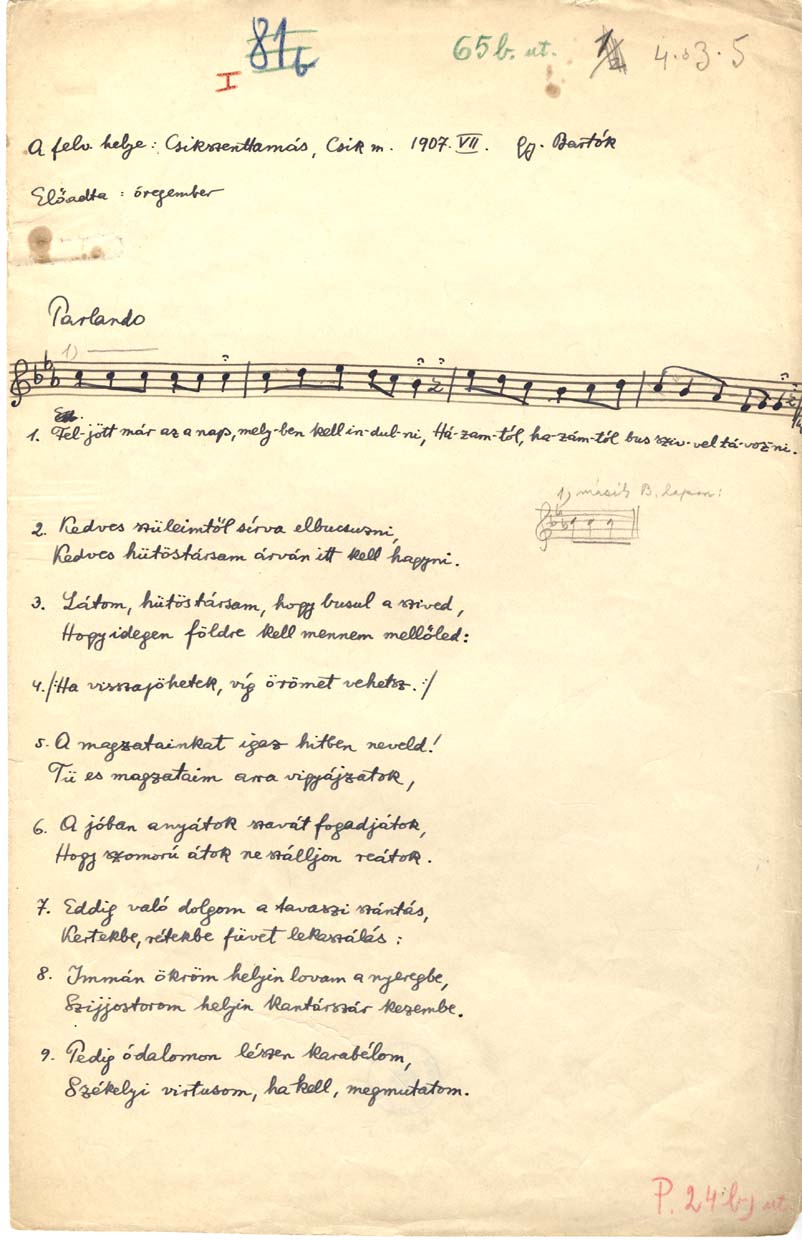 81 b
65b. ut. 4.・3・5
I
A felv. helye: Csikszenttamás, Csik m. 1907. VII. Gy. Bartók
Előadta: öregember
Parlando
1)
1. El-jött már az a nap, mely-ben kell in-dul-ni, Há-zam-tól, ha-zám-tól bus sziv-vel tá-voz-ni.
1) másik B. lapon:
2. Kedves szüleimtől sírva elbucsuzni,
Kedves hütöstársam árván itt kell hagyni.
3. Látom, hütöstársam, hogy busul a szived,
Hogy idegen földre kell mennem mellőled:
4. /: Ha visszajöhetek, víg örömet vehetsz. :/
5. A magzatainkat igaz hitben neveld!
Tü es magzataim arra vigyájzatok,
6. A jóban anyátok szavát fogadjátok,
Hogy szomorú átok ne szálljon reátok.
7. Eddig való dolgom a tavaszi szántás,
Kertekbe, rétekbe füvet lekaszálás:
8. Immán ökröm helyin lovam a nyeregbe,
Szijjostorom helyin kantárszár kezembe.
9. Pedig ódalomon lészen karabélom,
Székelyi virtusom, ha kell, megmutatom.
P. 24 b) ut.